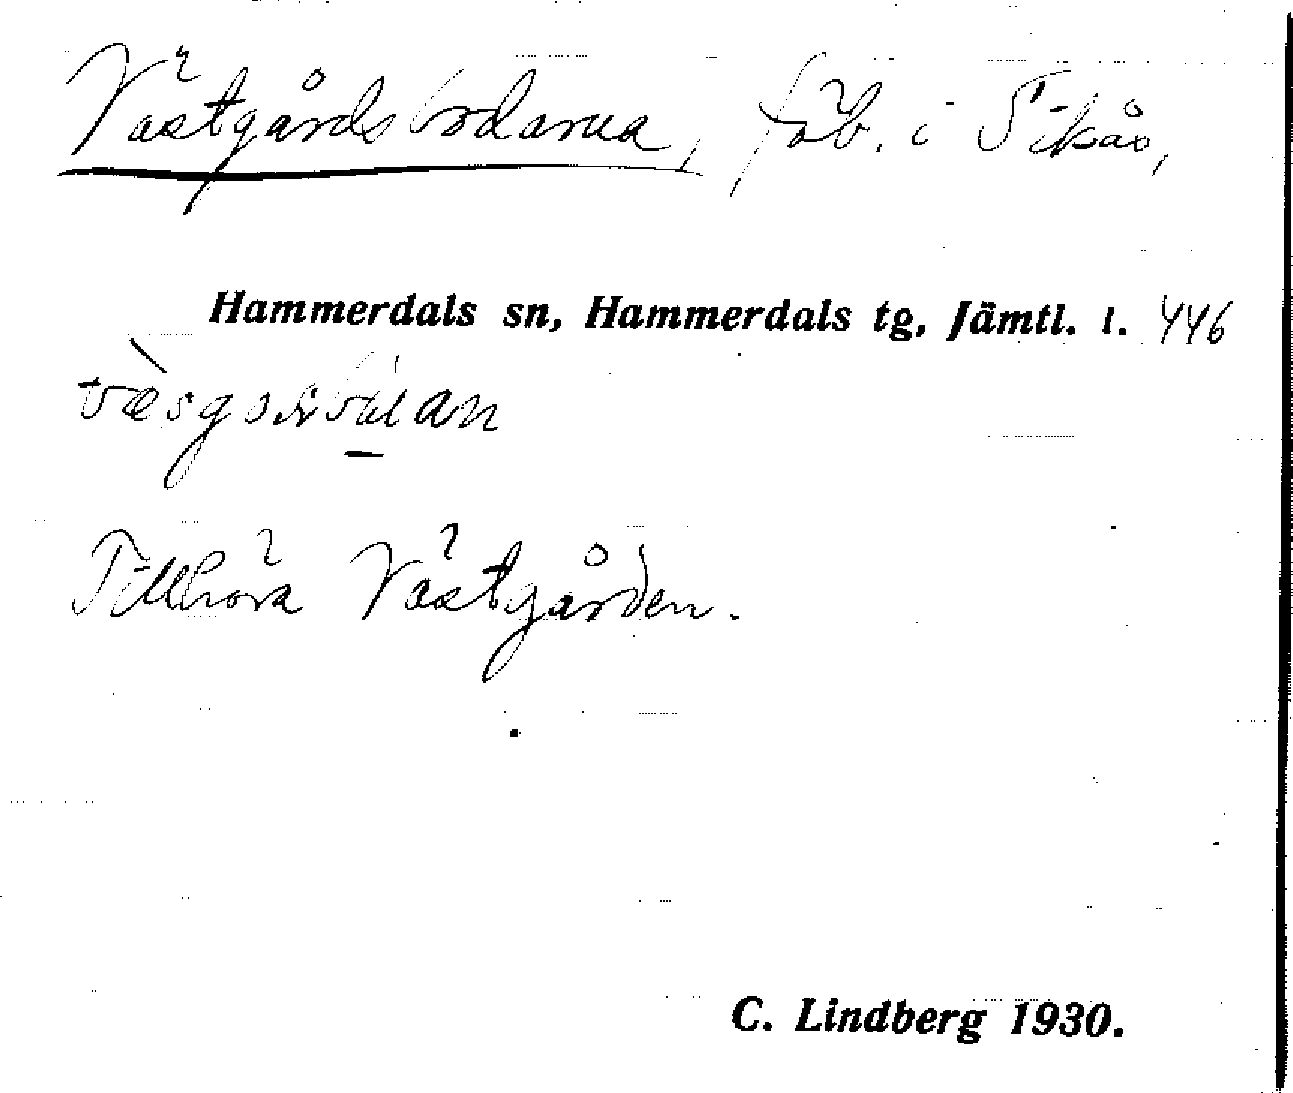 Västgårdsbodarna, fäb. i Fikås,
Hammerdals sn, Hammerdals tg, Jämtl. l. 446
Tillhöra Västgården.
C. Lindberg 1930.